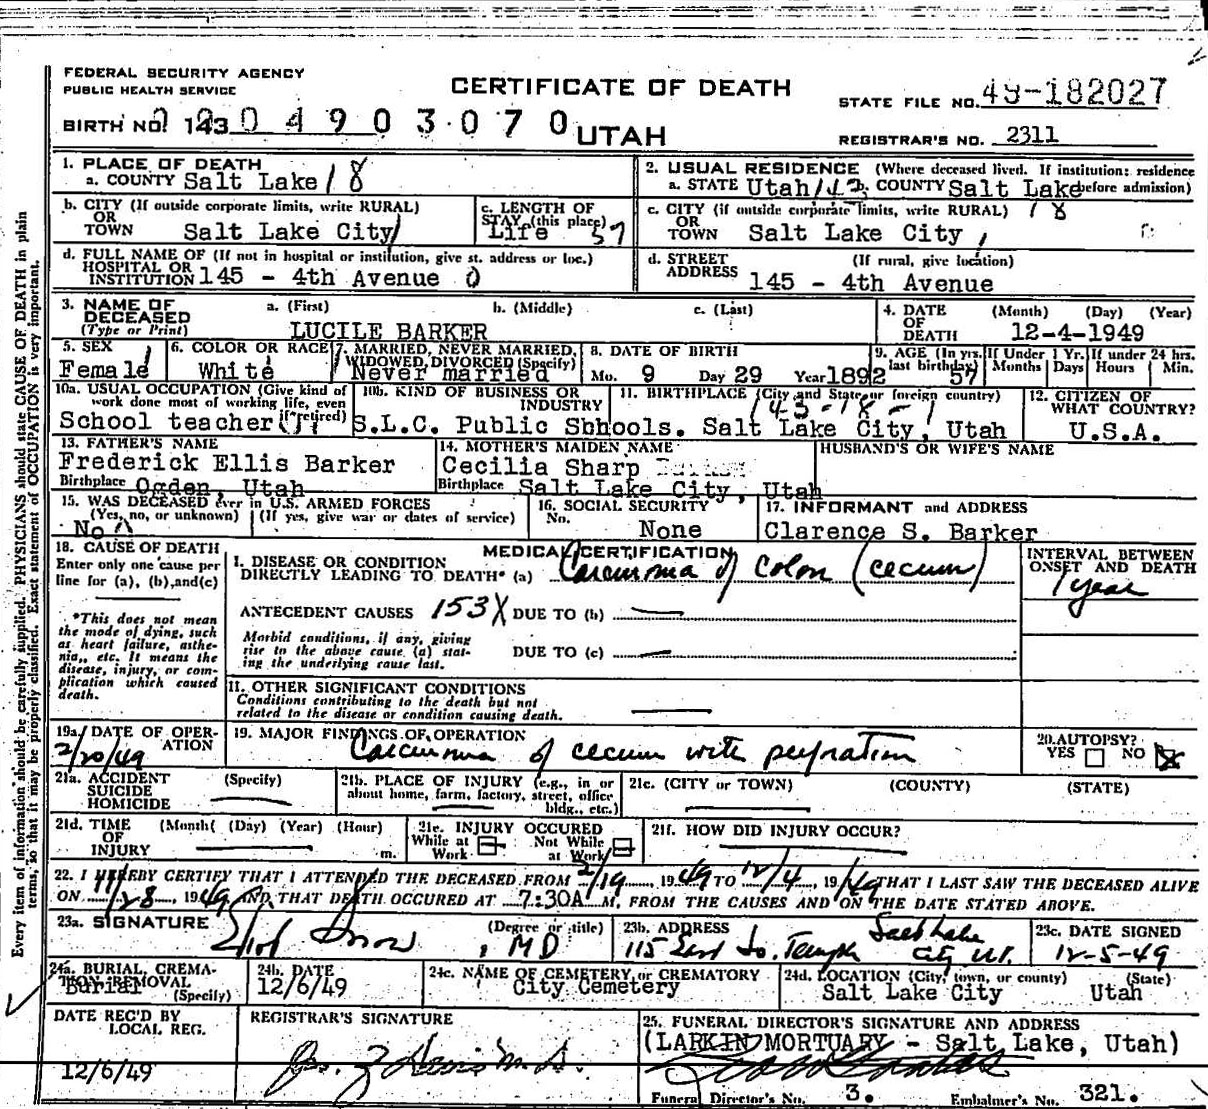 FEDERAL SECURITY AGENCY
PUBLIC HEALTH SERVICE
CERTIFICATE OF DEATH
STATE FILE NO. 49-182027
BIRTH NO. 143 0 4 9 0 3 0 7 0
UTAH
REGISTRAR'S NO. 2311
1. PLACE OF DEATH
a. COUNTY Salt Lake 18
2. USUAL RESIDENCE (Where deceased lived. If institution: residence before admission)
a. STATE Utah 143 b. COUNTY Salt Lake
b. CITY (If outside corporate limits, write RURAL)
OR
TOWN Salt Lake City 1
c. LENGTH OF
STAY (this place)
Life 57
c. CITY (if outside corporate limits, write RURAL) 18
OR
TOWN Salt Lake City 1
d. FULL NAME OF (If not in hospital or institution, give st. address or loc.)
HOSPITAL OR
INSTITUTION 145 - 4th Avenue 0
d. STREET (If rural, give location)
ADDRESS 145 - 4th Avenue
3. NAME OF a. (First) b. (Middle) c. (Last)
DECEASED
(Type or Print) LUCILE BARKER
4. DATE (Month) (Day) (Year)
OF
DEATH 12-4-1949
5. SEX
Female 1
6. COLOR OR RACE
White
7. MARRIED, NEVER MARRIED,
WIDOWED, DIVORCED (Specify)
Never married
8. DATE OF BIRTH
Mo. 9 Day 29 Year 1892
9. AGE (In yrs. last birthday) 57
If Under 1 Yr. Months Days
If under 24 hrs. Hours Min.
10a. USUAL OCCUPATION (Give kind of
work done most of working life, even
if retired)
School teacher
10b. KIND OF BUSINESS OR
INDUSTRY
S.L.C. Public Sbhools.
11. BIRTHPLACE (City and State or foreign country)
143-18-1
Salt Lake City, Utah
12. CITIZEN OF
WHAT COUNTRY?
U.S.A.
13. FATHER'S NAME
Frederick Ellis Barker
Birthplace Ogden, Utah
14. MOTHER'S MAIDEN NAME
Cecilia Sharp
Birthplace Salt Lake City, Utah
HUSBAND'S OR WIFE'S NAME
15. WAS DECEASED ever in U.S. ARMED FORCES
(Yes, no, or unknown) (If yes, give war or dates of service)
No
16. SOCIAL SECURITY
No. None
17. INFORMANT and ADDRESS
Clarence S. Barker
18. CAUSE OF DEATH
Enter only one cause per
line for (a), (b), and (c)
*This does not mean
the mode of dying, such
as heart failure, asthe-
nia, etc. It means the
disease, injury, or com-
plication which caused
death.
MEDICAL CERTIFICATION
I. DISEASE OR CONDITION
DIRECTLY LEADING TO DEATH* (a) Carcinoma of Colon (cecum)
INTERVAL BETWEEN
ONSET AND DEATH
1 year
ANTECEDENT CAUSES 153X DUE TO (b)
Morbid conditions, if any, giving
rise to the above cause (a) stat-
ing the underlying cause last.
DUE TO (c)
11. OTHER SIGNIFICANT CONDITIONS
Conditions contributing to the death but not
related to the disease or condition causing death.
19a. DATE OF OPER-
ATION
2/20/49
19. MAJOR FINDINGS OF OPERATION
Carcinoma of cecum with perforation
20. AUTOPSY?
YES NO
21a. ACCIDENT (Specify)
SUICIDE
HOMICIDE
21b. PLACE OF INJURY (e.g., in or
about home, farm, factory, street, office
bldg., etc.)
21c. (CITY or TOWN) (COUNTY) (STATE)
21d. TIME (Month) (Day) (Year) (Hour)
OF
INJURY m.
21e. INJURY OCCURED
While at Work Not While at Work
21f. HOW DID INJURY OCCUR?
22. I HEREBY CERTIFY THAT I ATTENDED THE DECEASED FROM 2/19, 1949 TO 12/4, 1949 THAT I LAST SAW THE DECEASED ALIVE
ON 11/28, 1949 AND THAT DEATH OCCURED AT 7:30A M. FROM THE CAUSES AND ON THE DATE STATED ABOVE.
23a. SIGNATURE (Degree or title)
Eliot Snow, MD
23b. ADDRESS
115 East So. Temple Salt Lake City Ut.
23c. DATE SIGNED
12-5-49
24a. BURIAL, CREMA-
TION REMOVAL
(Specify)
Burial
24b. DATE
12/6/49
24c. NAME OF CEMETERY or CREMATORY
City Cemetery
24d. LOCATION (City, town, or county) (State)
Salt Lake City Utah
DATE REC'D BY
LOCAL REG.
12/6/49
REGISTRAR'S SIGNATURE
25. FUNERAL DIRECTOR'S SIGNATURE AND ADDRESS
(LARKIN MORTUARY - Salt Lake, Utah)
Funeral Director's No. 3. Embalmer's No. 321.
Every item of information should be carefully supplied. PHYSICIANS should state CAUSE OF DEATH in plain
terms, so that it may be properly classified. Exact statement of OCCUPATION is very important.